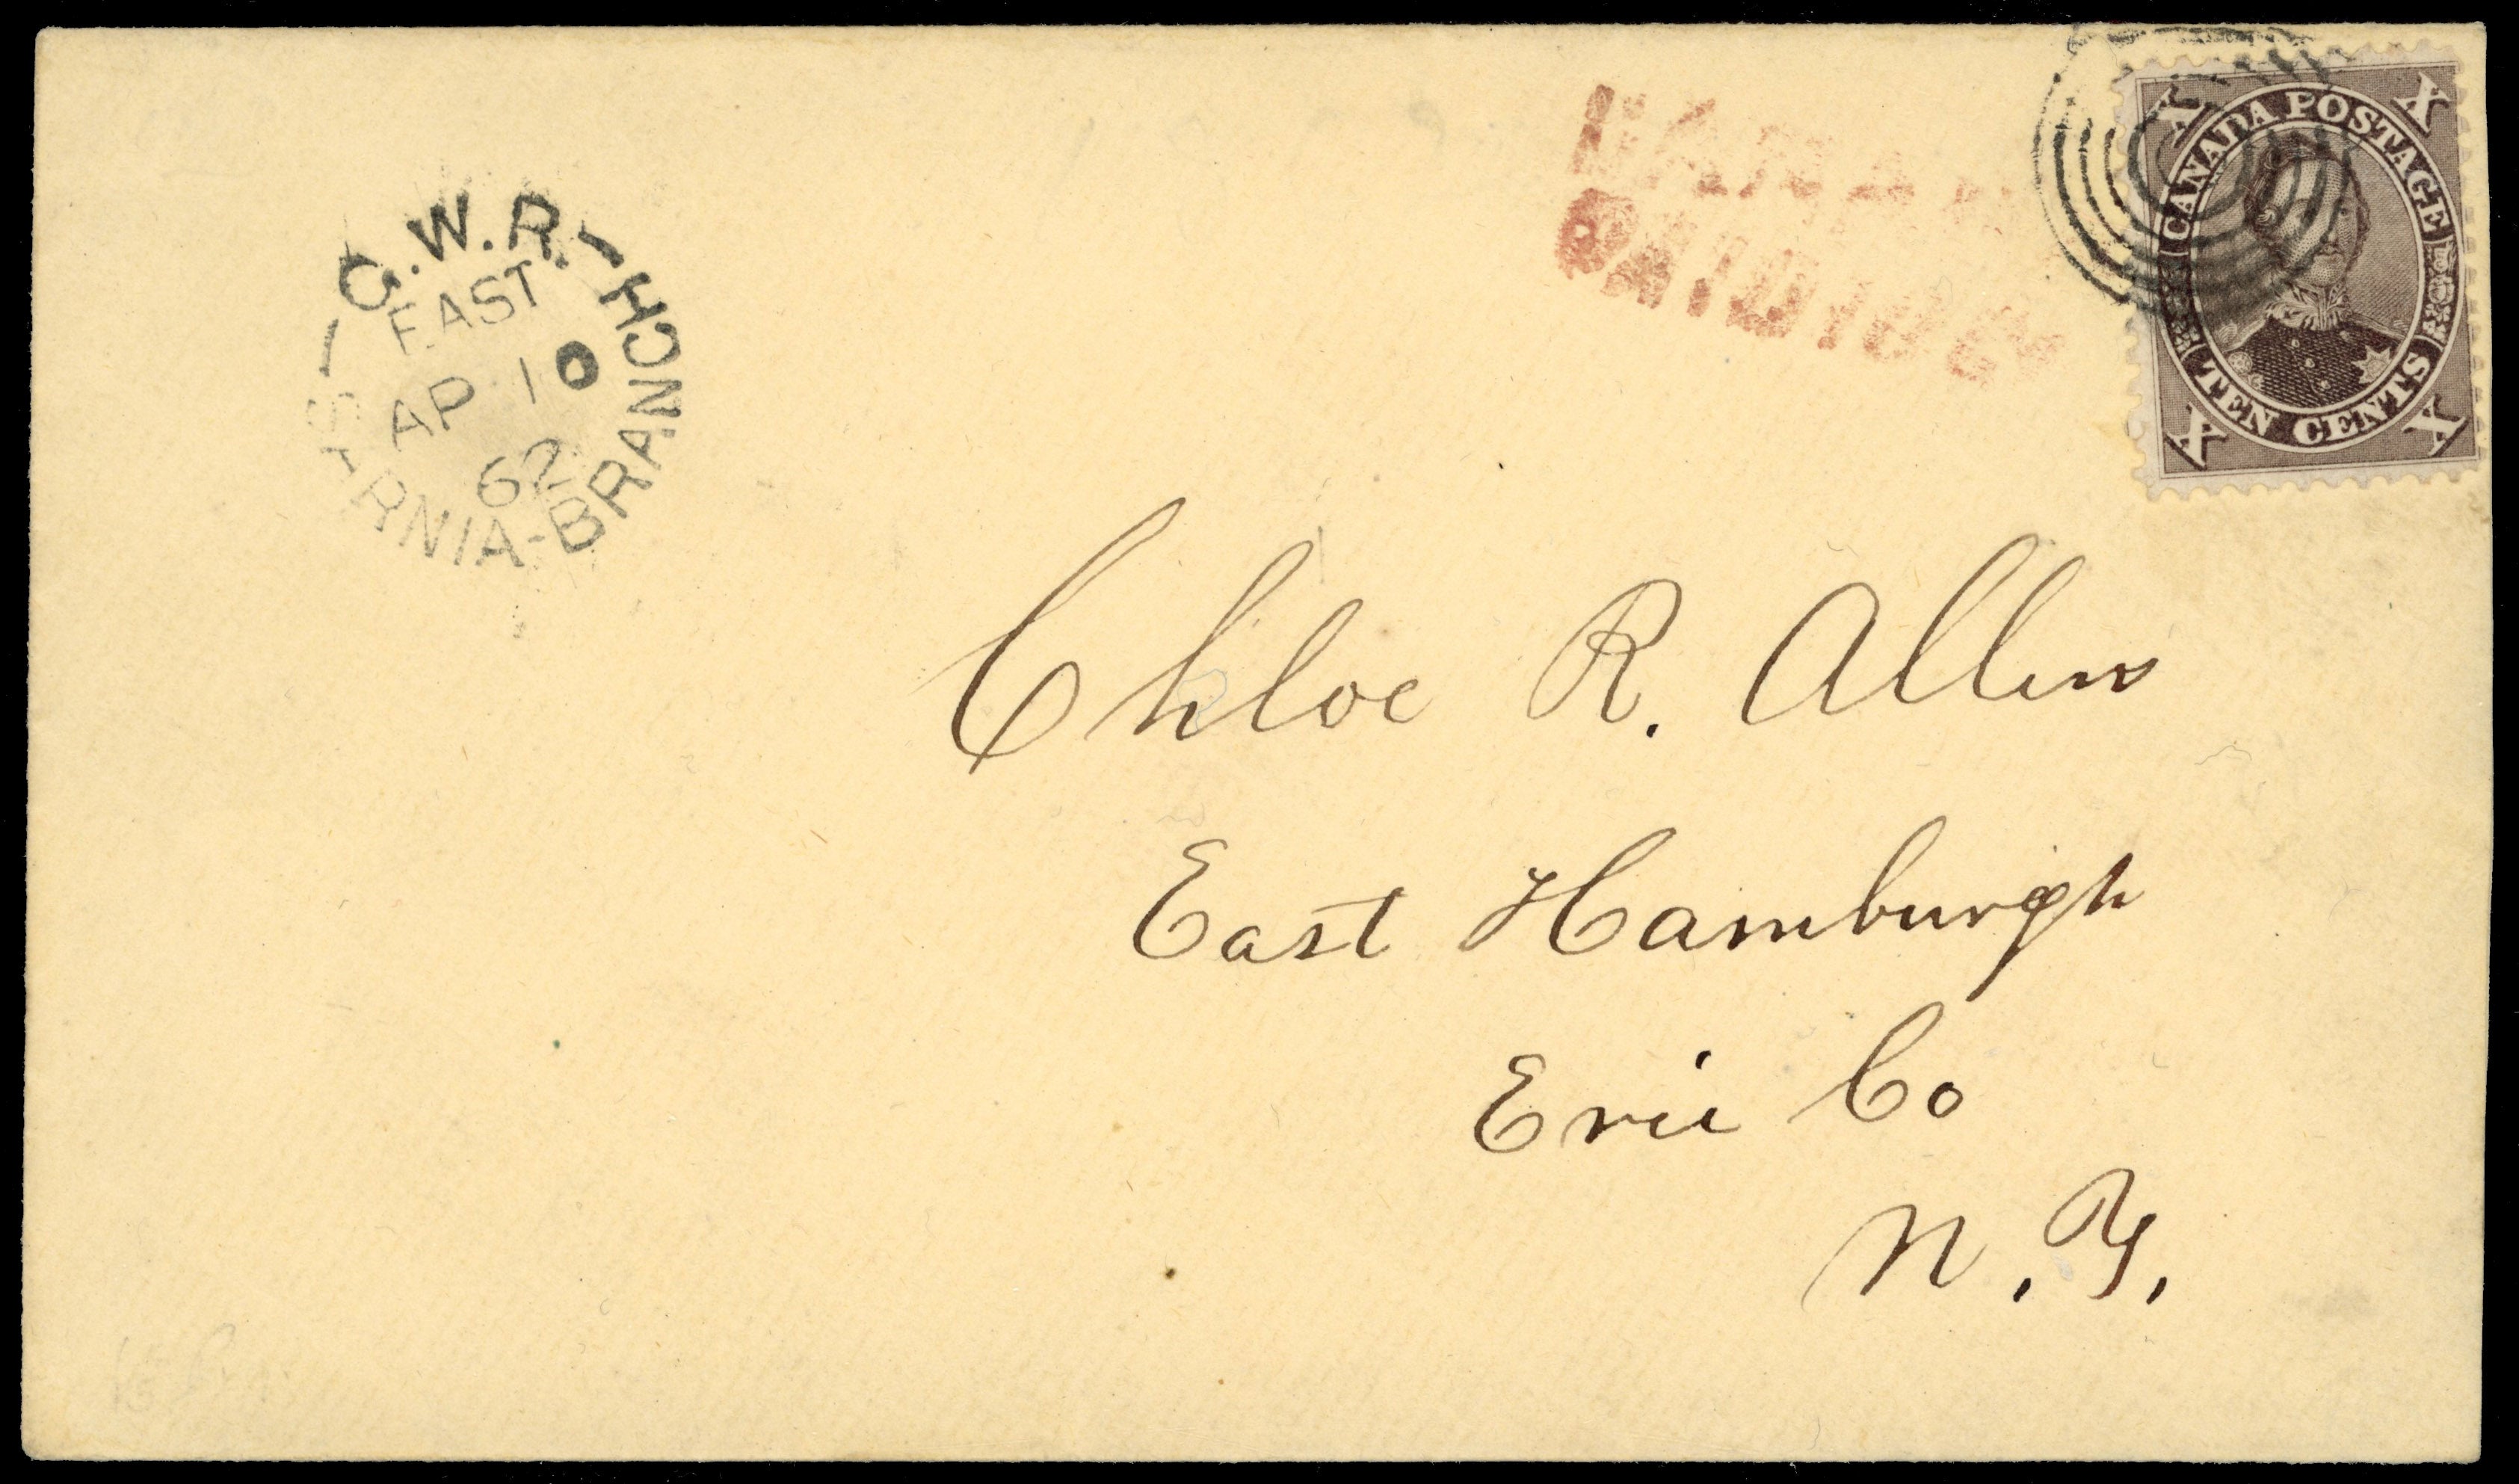 G.W.R.
EAST
AP 10
62
SARNIA-BRANCH
CANADA
PAID 10 Cts
X X
CANADA POSTAGE
TEN CENTS
X X
Chloe R. Allen
East Hamburgh
Erie Co
N.Y.